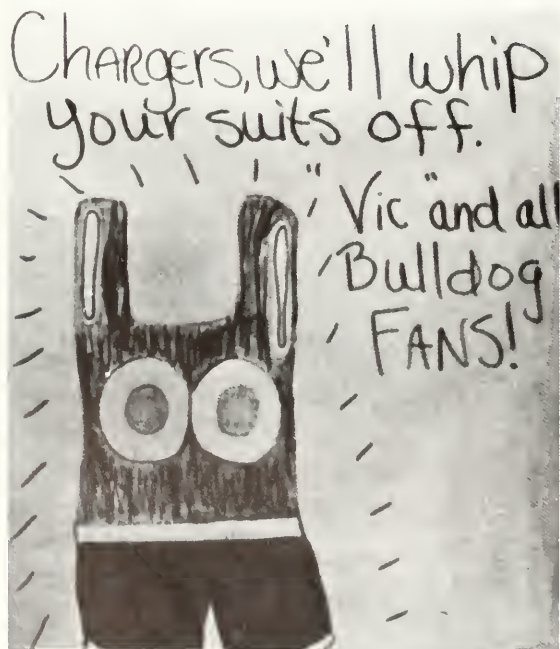 CHARgERS, we'll whip
your suits off.
"Vic" and all
Bulldog
FANS!